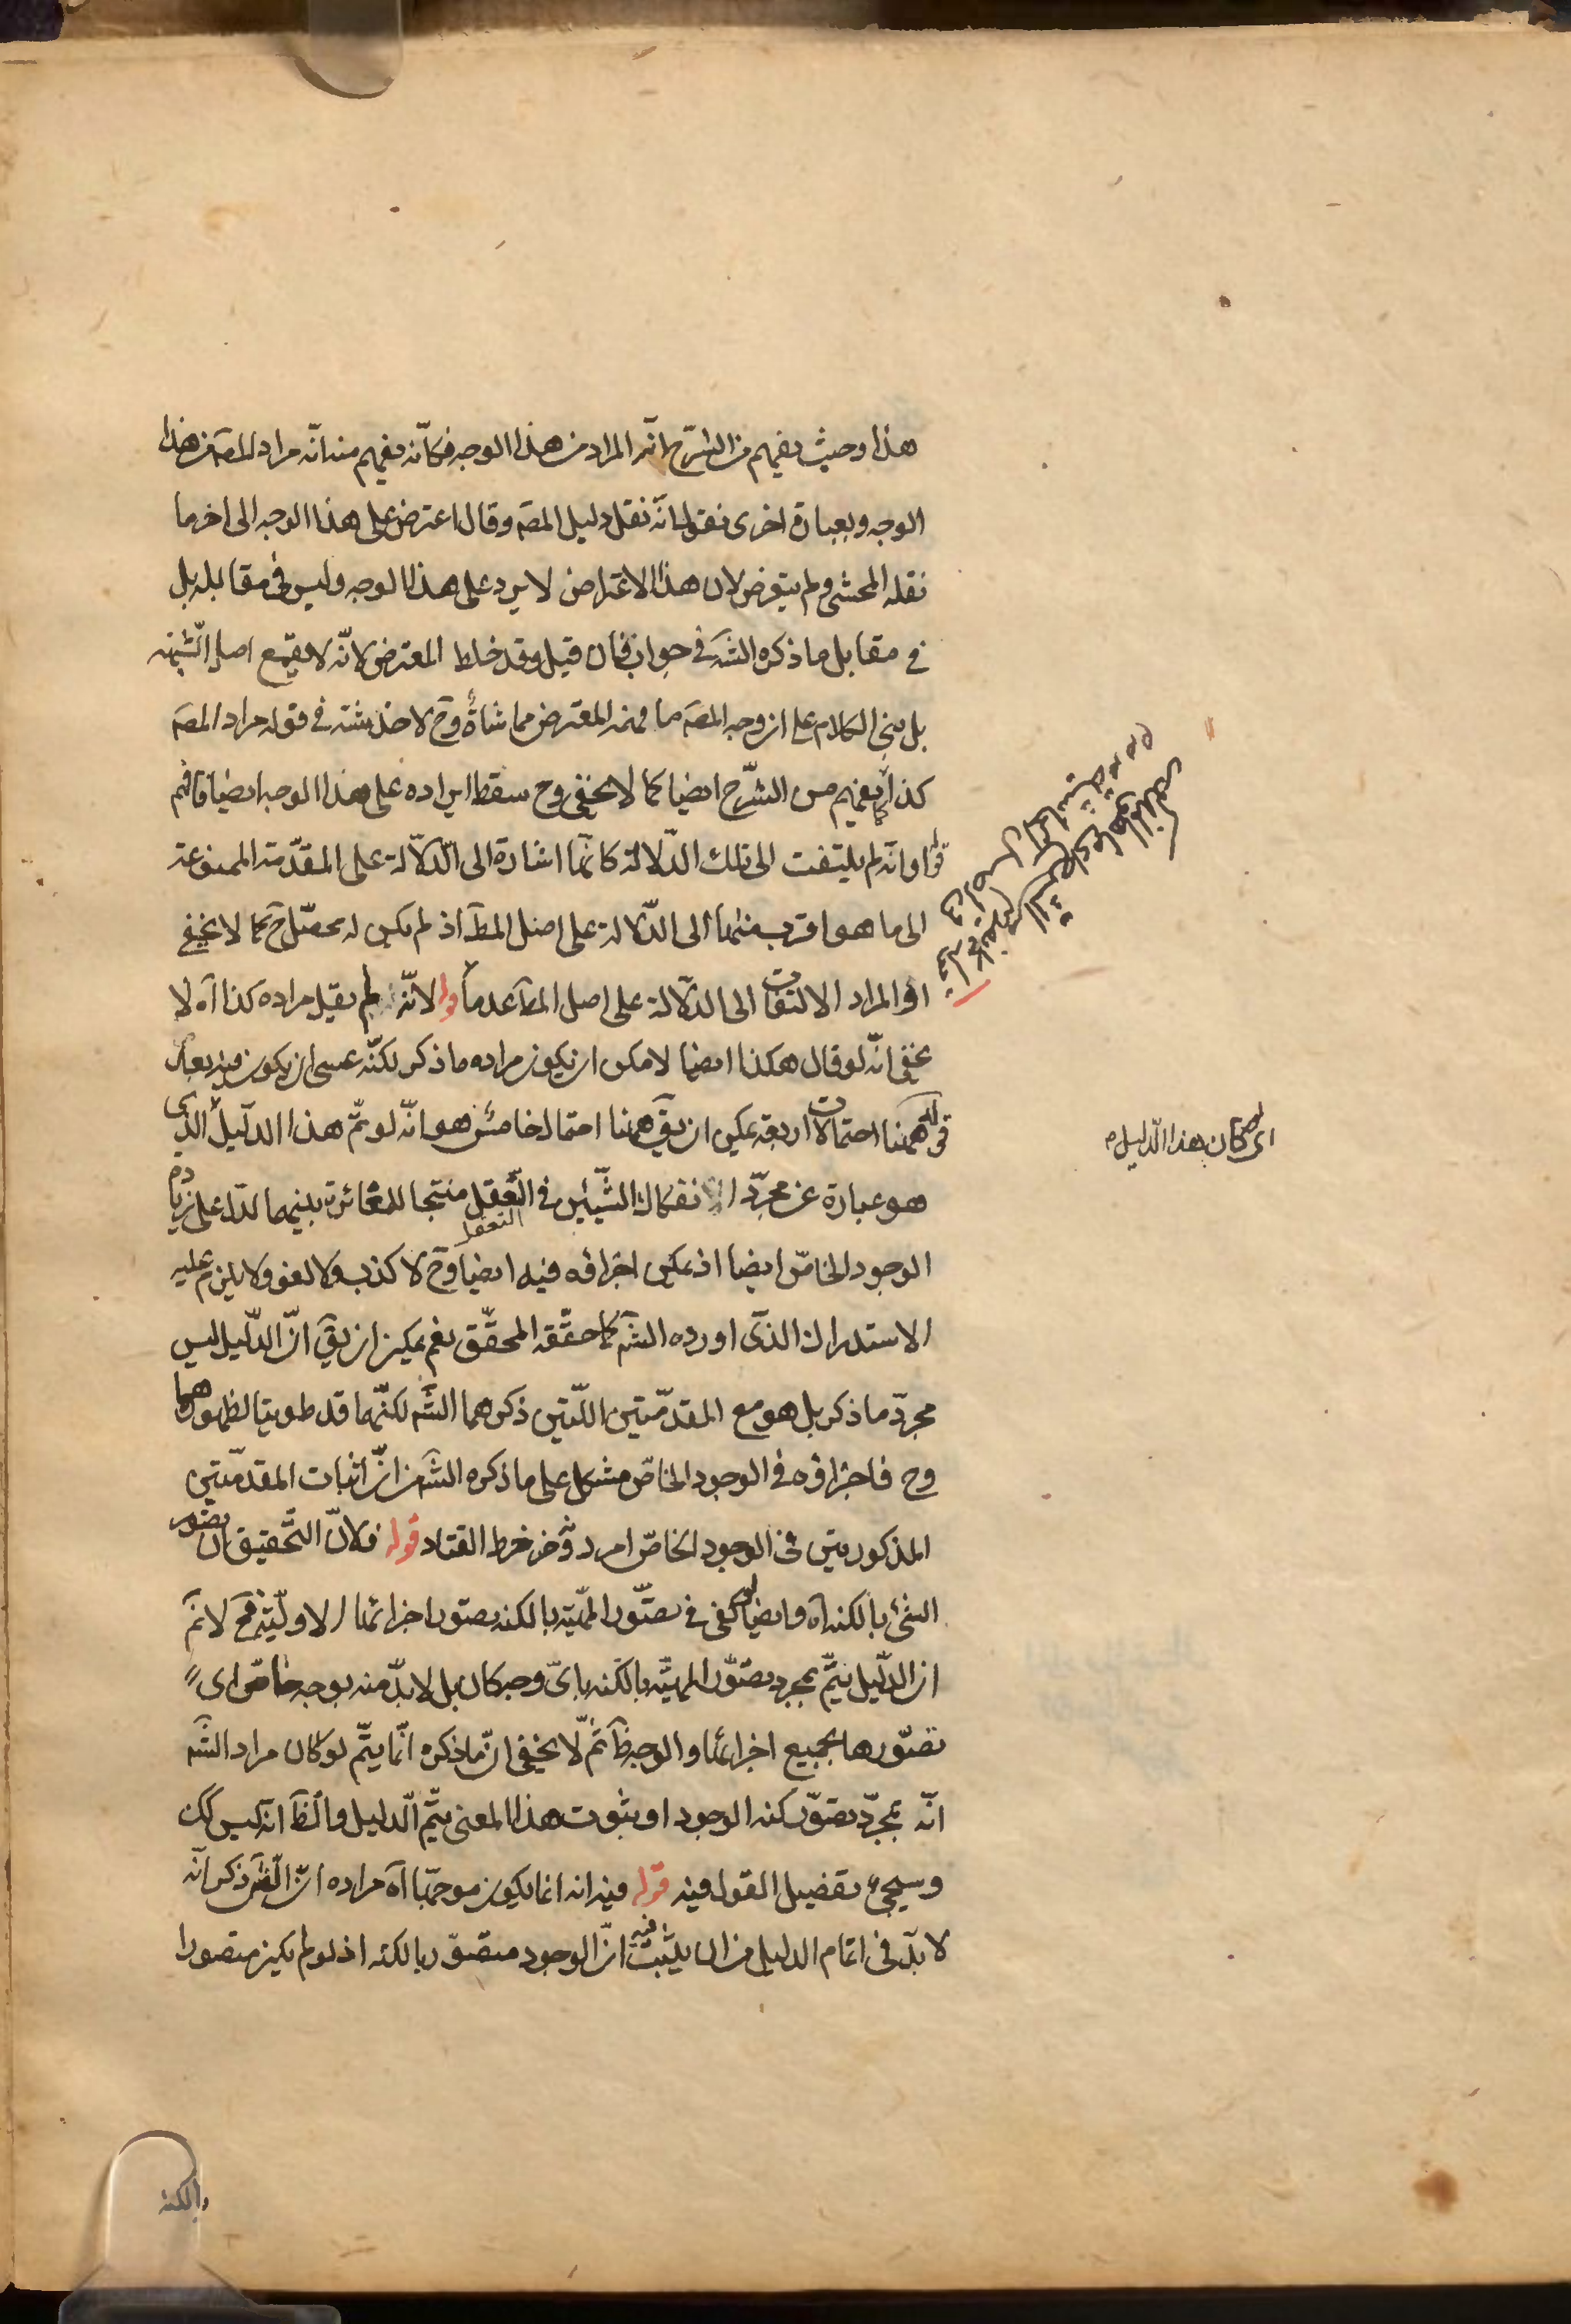 هذا وحيث يفهم من الشرح انّه المراد من هذا الوجه فكانّه يفهم منه انّه مراد المصَ من هذا
الوجه وبعبارة اخرى نقول انّه نقل دليل المصَ وقال اعترض على هذا الوجه الى اخر ما
نقله المحشى ولم يتعرض لان هذا الاعتراض لا يرد على هذا الوجه وليس فى مقابله بل
فى مقابل ما ذكره الشَ فى جوابه فان قيل وقد خلط المعترض لانّه لا يقمع اصل الشّبهة
بل بنى الكلام على ان وجه المصَ ما فهمه المعترض مماشاةً وحَ لا خدشة فى قوله مراد المصَ
كذا يفهم من الشّرح ايضا كما لا يخفى وح سقط ايراده على هذا الوجه ايضا فافهم
قوله او انّه لم يلتفت الى تلك الدّلالة كانّها اشارة الى الدّلالة على المقدّمة الممنوعة
الى ما هو اقرب منها الى الدّلالة على اصل المطَ اذ لم يكن له محصّل حَ كما لا يخفى
او المراد الالتفات الى الدّلالة على اصل المطَ عدماً قوله لانّه لم يقل مراده كذا آه لا
يخفى انّه لو قال هكذا ايضا لامكن ان يكون مراده ما ذكر لكنّه عسى ان يكون فيه بعد
قوله ههنا احتمالات اربعة يمكن ان يقَ ههنا احتمال خامس هو انّه لو تمّ هذا الدّليل الّذى
هو عبارة عن مجرّد انفكاك الشّيئين فى التّعقل منتجا للمغائرة بينهما لدلّ على زيادة
التعقل
الوجود الخاصّ ايضا اذ يمكن اجراؤه فيه ايضا وحَ لا كذب ولا لغو ولا يلزم عليه
الاستدراك الذى اورده الشَ كما حقّقه المحقّق نعم يمكن ان يقَ انّ الدّليل ليس
مجرّد ما ذكر بل هو مع المقدّمتين اللّتين ذكرهما الشَ لكنّهما قد طويتا لظهورهما
وح فاجراؤه فى الوجود الخاصّ مشكل على ما ذكره الشَ من انّ اثبات المقدّمتين
المذكورتين فى الوجود الخاصّ امر دونه خرط القتاد قوله فلانّ التّحقيق ان تصور
الشئ بالكنه آه وايضا لو كفى فى تصوّر المهيّة بالكنه تصوّر اجزائها الاوليّة فحَ لا نمَ
ان الدّليل يتمّ بمجرد تصوّر المهيّة بالكنه باىّ وجه كان بل لا بدّ منه بوجه خاصّ اى
تصوّرها بجميع اجزائها والوجه ظَ ثمّ لا يخفى انّ ما ذكره انّما يتمّ لو كان مراد الشَ
انّه بمجرّد تصوّر كنه الوجود او ثبوت هذا المعنى يتمّ الّدليل والظَ انّه ليس كك
وسيجئ تفصيل القول فيه قوله فيه انه انما يكون موجّها آه مراده انّ الشَ ذكر انّه
لا بدّ فى اتمام الدليل من ان يثبت فيه انّ الوجود متصوّر بالكنه اذ لو لم يكن متصورا
بالكنه
اى لو كان هذا الدّليل م